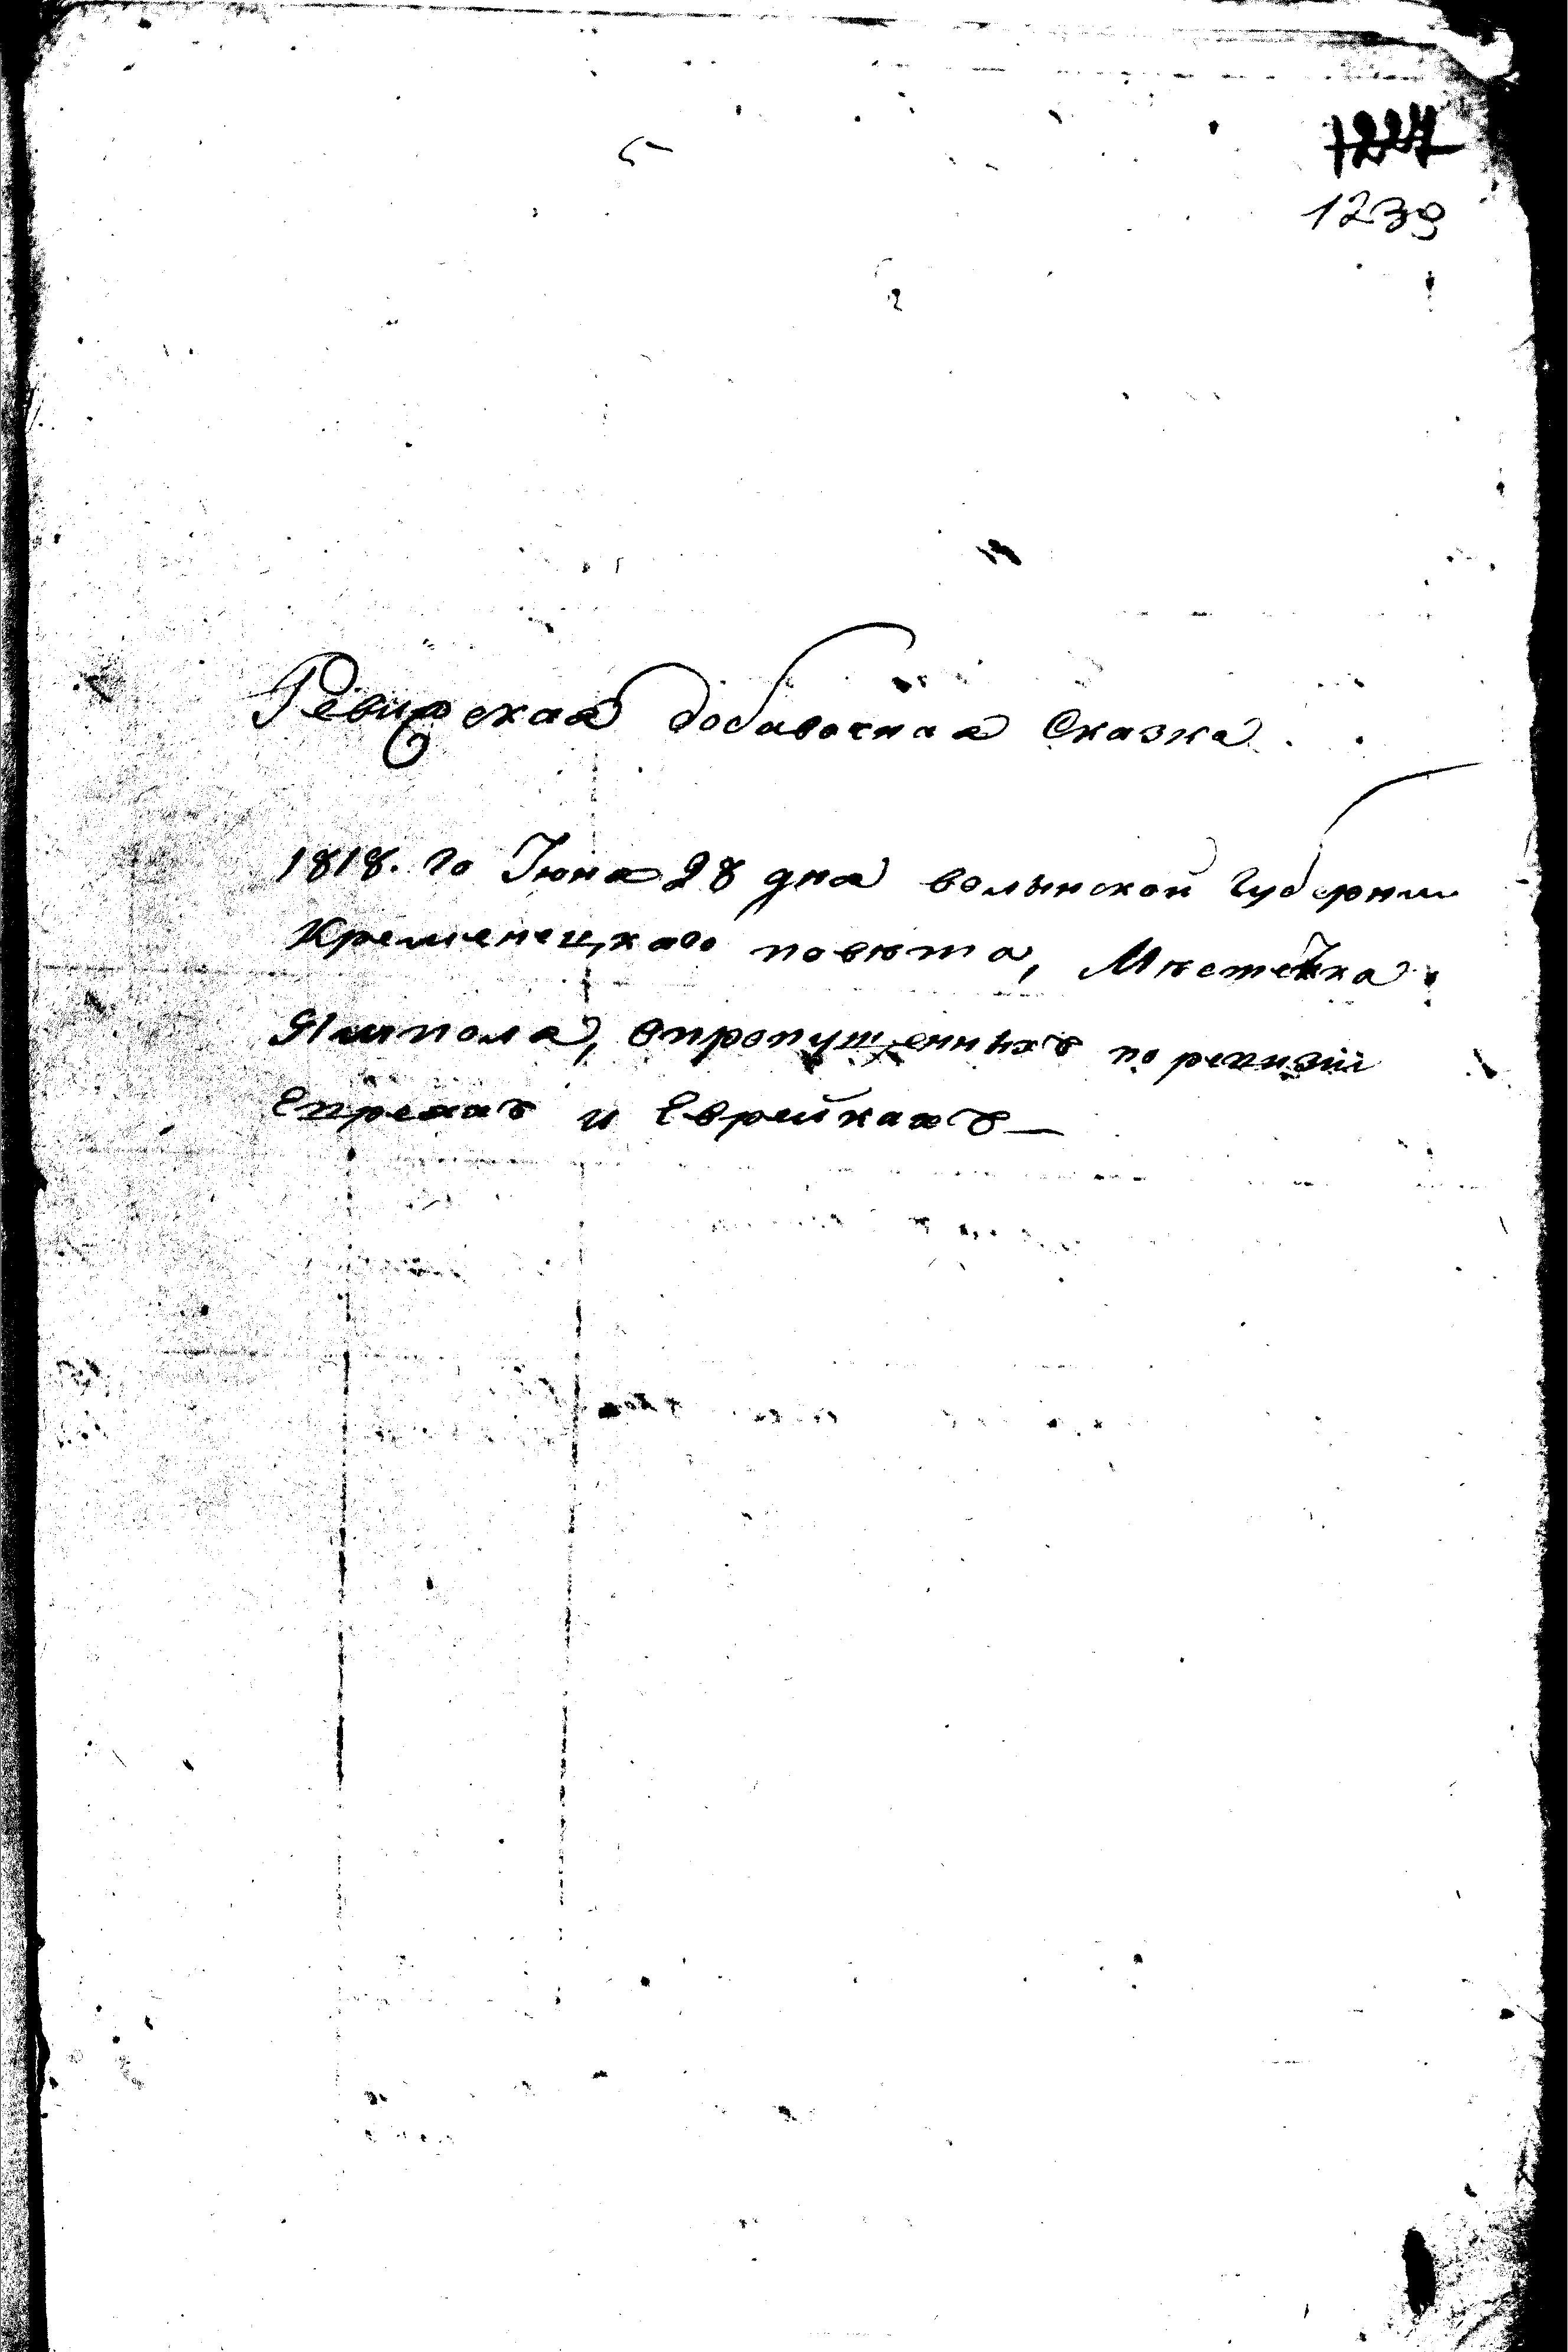 1227
1239
Ревизская добавочная Сказка
1818. го Июня 28 дня волынской губернии
Кременецкаго повѣта, Мѣстечка
Ямпола, опропущенныхъ по ревизіи
Евреяхъ и Еврейкахъ